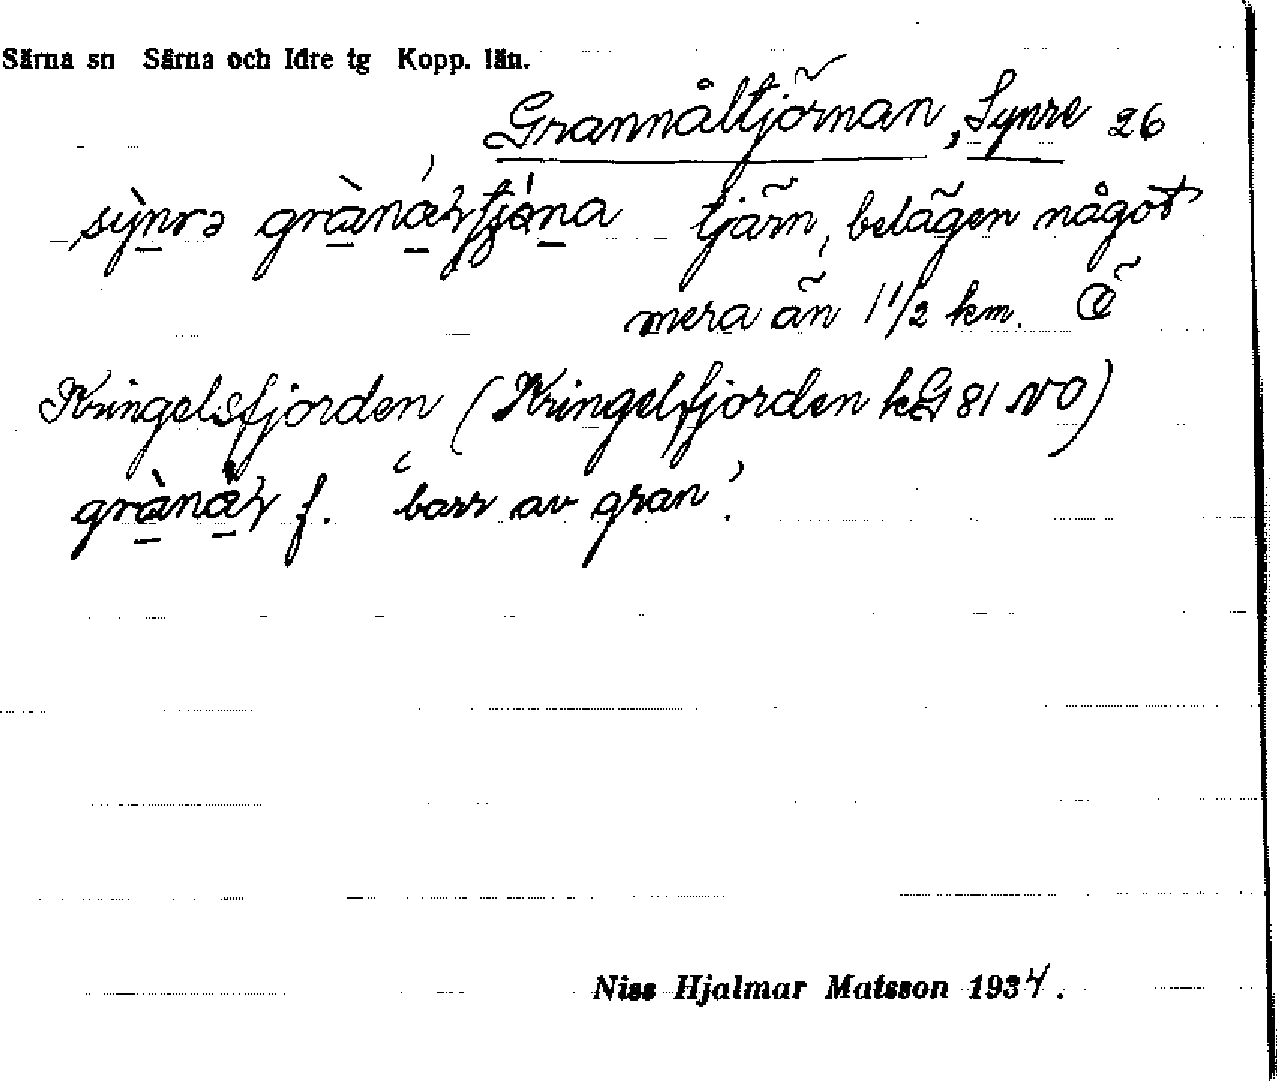 Särna sn Särna och Idre tg Kopp. län.
Grannåltjörnan, Synre 26
tjärn, belägen något
mera än 1 1/2 km. Ö
Kringelsfjorden (Kringelfjorden kG 81 NO)
f. 'barr av gran'.
Niss Hjalmar Matsson 1934.